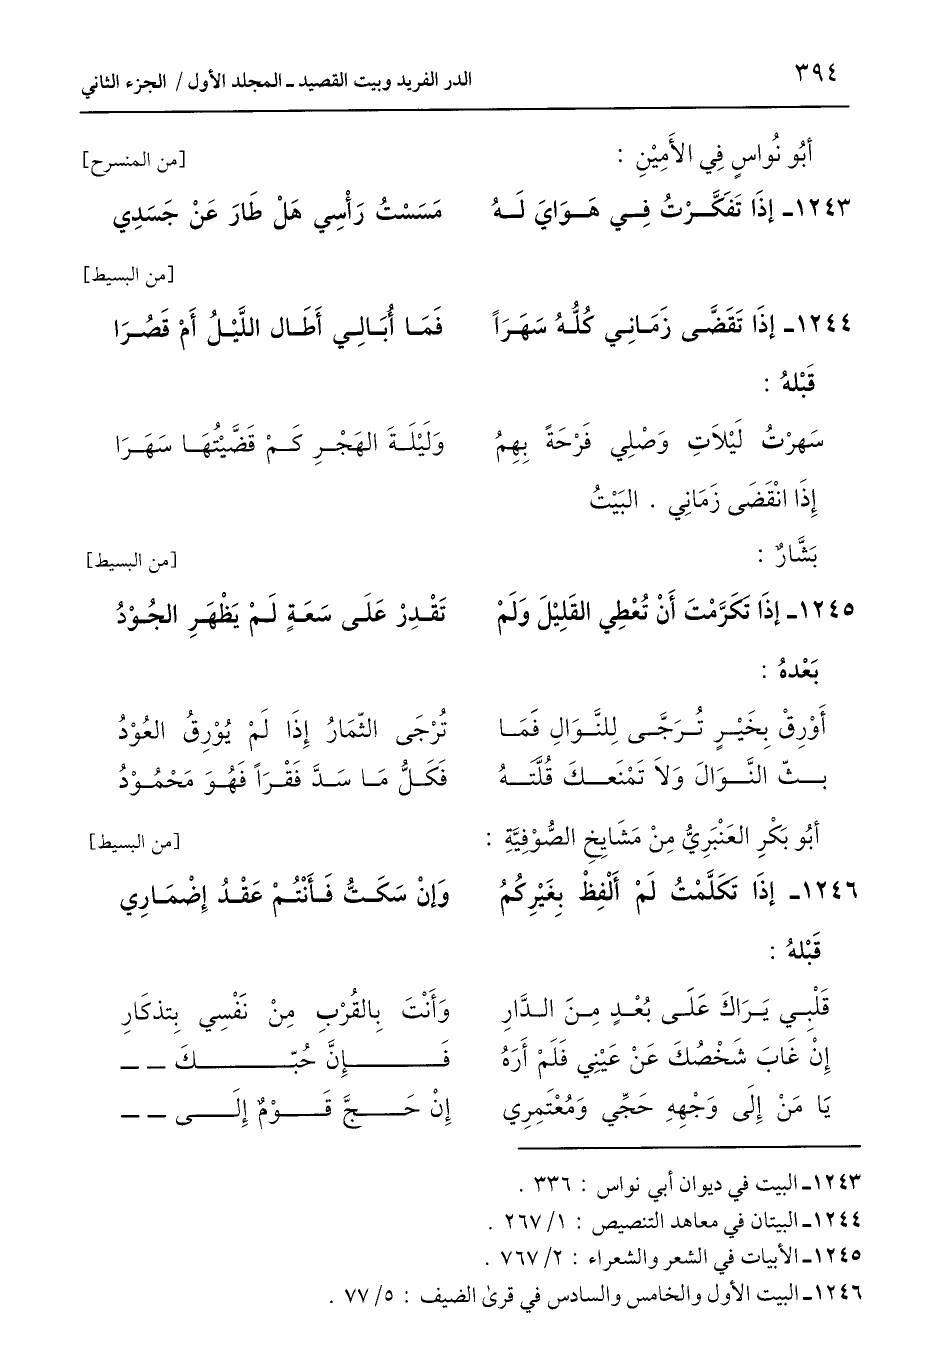 ٣٩٤ الدر الفريد وبيت القصيد ـ المجلد الأول / الجزء الثاني
أَبُو نُواسٍ فِي الأَمِيْنِ : [من المنسرح]
١٢٤٣ـ إِذَا تَفَكَّرْتُ فِي هَوَايَ لَهُ مَسَسْتُ رَأْسِي هَلْ طَارَ عَنْ جَسَدِي
[من البسيط]
١٢٤٤ـ إِذَا تَقَضَّى زَمَانِي كُلُّهُ سَهَرَاً فَمَا أُبَالِي أَطَال اللَّيْلُ أَمْ قَصُرَا
قَبْلهُ :
سَهرْتُ لَيْلاَتِ وَصْلِي فَرْحَةً بِهِمُ وَلَيْلَةَ الهَجْرِ كَمْ قَضَّيْتُهَا سَهَرَا
إِذَا انْقَضَى زَمَانِي . البَيْتُ
بَشَّارٌ : [من البسيط]
١٢٤٥ـ إِذَا تَكَرَّمْتَ أَنْ تُعْطِي القَلِيْلَ وَلَمْ تَقْدِرْ عَلَى سَعَةٍ لَمْ يَظْهَرِ الجُوْدُ
بَعْدهُ :
أَوْرِقْ بِخَيْرٍ تُرَجَّى لِلنَّوَالِ فَمَا تُرْجَى الثّمَارُ إِذَا لَمْ يُوْرِقُ العُوْدُ
بثّ النَّوَالَ وَلاَ تَمْنَعكَ قُلَّتهُ فَكَلُّ مَا سَدَّ فَقْرَاً فَهُوَ مَحْمُوْدُ
أَبُو بَكْرِ العَنْبَرِيُّ مِنْ مَشَايِخِ الصُّوْفِيَّةِ : [من البسيط]
١٢٤٦ـ إِذَا تَكَلَّمْتُ لَمْ أَلْفِظْ بِغَيْرِكُمُ وَإنْ سَكَتُّ فَأَنْتُمْ عَقْدُ إِضْمَارِي
قَبْلهُ :
قَلْبِي يَرَاكَ عَلَى بُعْدٍ مِنَ الدَّارِ وَأَنْتَ بِالقُرْبِ مِنْ نَفْسِي بِتذكَارِ
إِنْ غَابَ شَخْصُكَ عَنْ عَيْنِي فَلَمْ أَرَهُ فَإِنَّ حُبّكَ ــ ــ
يَا مَنْ إِلَى وَجْهِهِ حَجِّي وَمُعْتَمِرِي إِنْ حَجَّ قَوْمٌ إِلَى ــ ــ
١٢٤٣ـ البيت في ديوان أبي نواس : ٣٣٦ .
١٢٤٤ـ البيتان في معاهد التنصيص : ١/ ٢٦٧ .
١٢٤٥ـ الأبيات في الشعر والشعراء : ٢/ ٧٦٧ .
١٢٤٦ـ البيت الأول والخامس والسادس في قرىٰ الضيف : ٥/ ٧٧ .